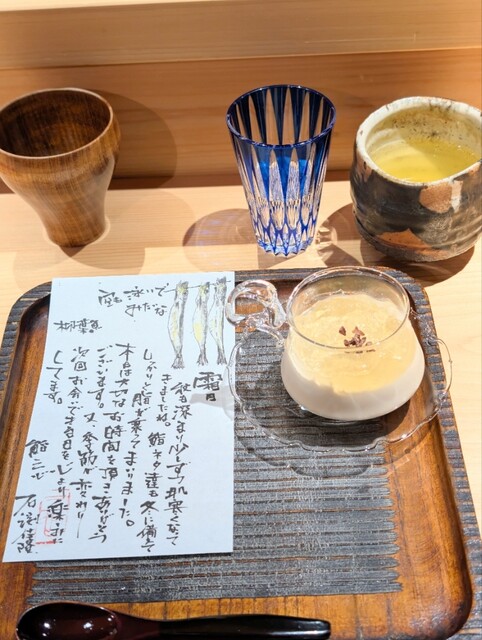 空も泳いで
みだな
柳葉魚
霜月
秋も深まり少しずつ肌寒くなって
きましたね。鮨ネタ達も冬に備えて
しっかりと脂が乗ってまいりました。
本日は大切なお時間を頂きありがとう
ございます。又、季節が変わり
次回お会いできる日を心より楽しみに
してます。